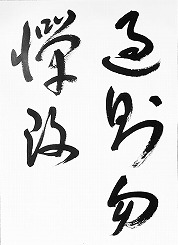 過則勿
憚改